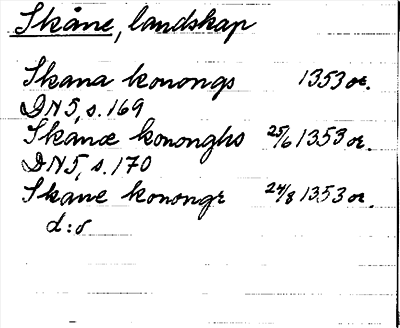 Skåne, landskap
Skana konongs 1353 or.
DN 5, s. 169
Skånæ kononghs 25/6 1353 or.
DN 5, s. 170
Skane konongr 24/8 1353 or.
d:o